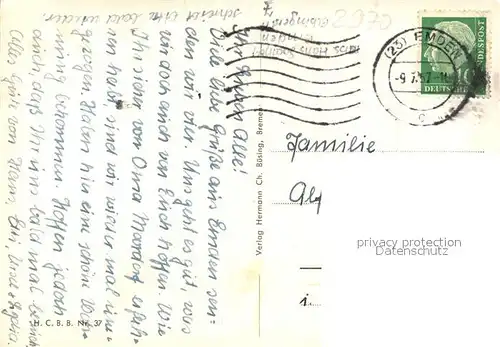 Ihr Lieben Alle!
Viele liebe Grüße aus Emden sen-
den wir vier. Uns geht es gut, was
wir doch auch von Euch hoffen. Wie
Ihr sicher von Oma erfah-
ren habt sind wir wieder mal um-
gezogen. Haben hier eine schöne Woh-
nung bekommen. Hoffen jedoch
auch, daß Ihr uns bald mal besucht
Alles Gute von Hans,
schreibt bitte bald wieder
H. C. B. B. Nr. 37
Verlag Hermann Ch. Büsing, Bremen
(23) EMDEN
-9.7.57
c
10
DEUTSCHE
BUNDESPOST
Familie
privacy protection
Datenschutz